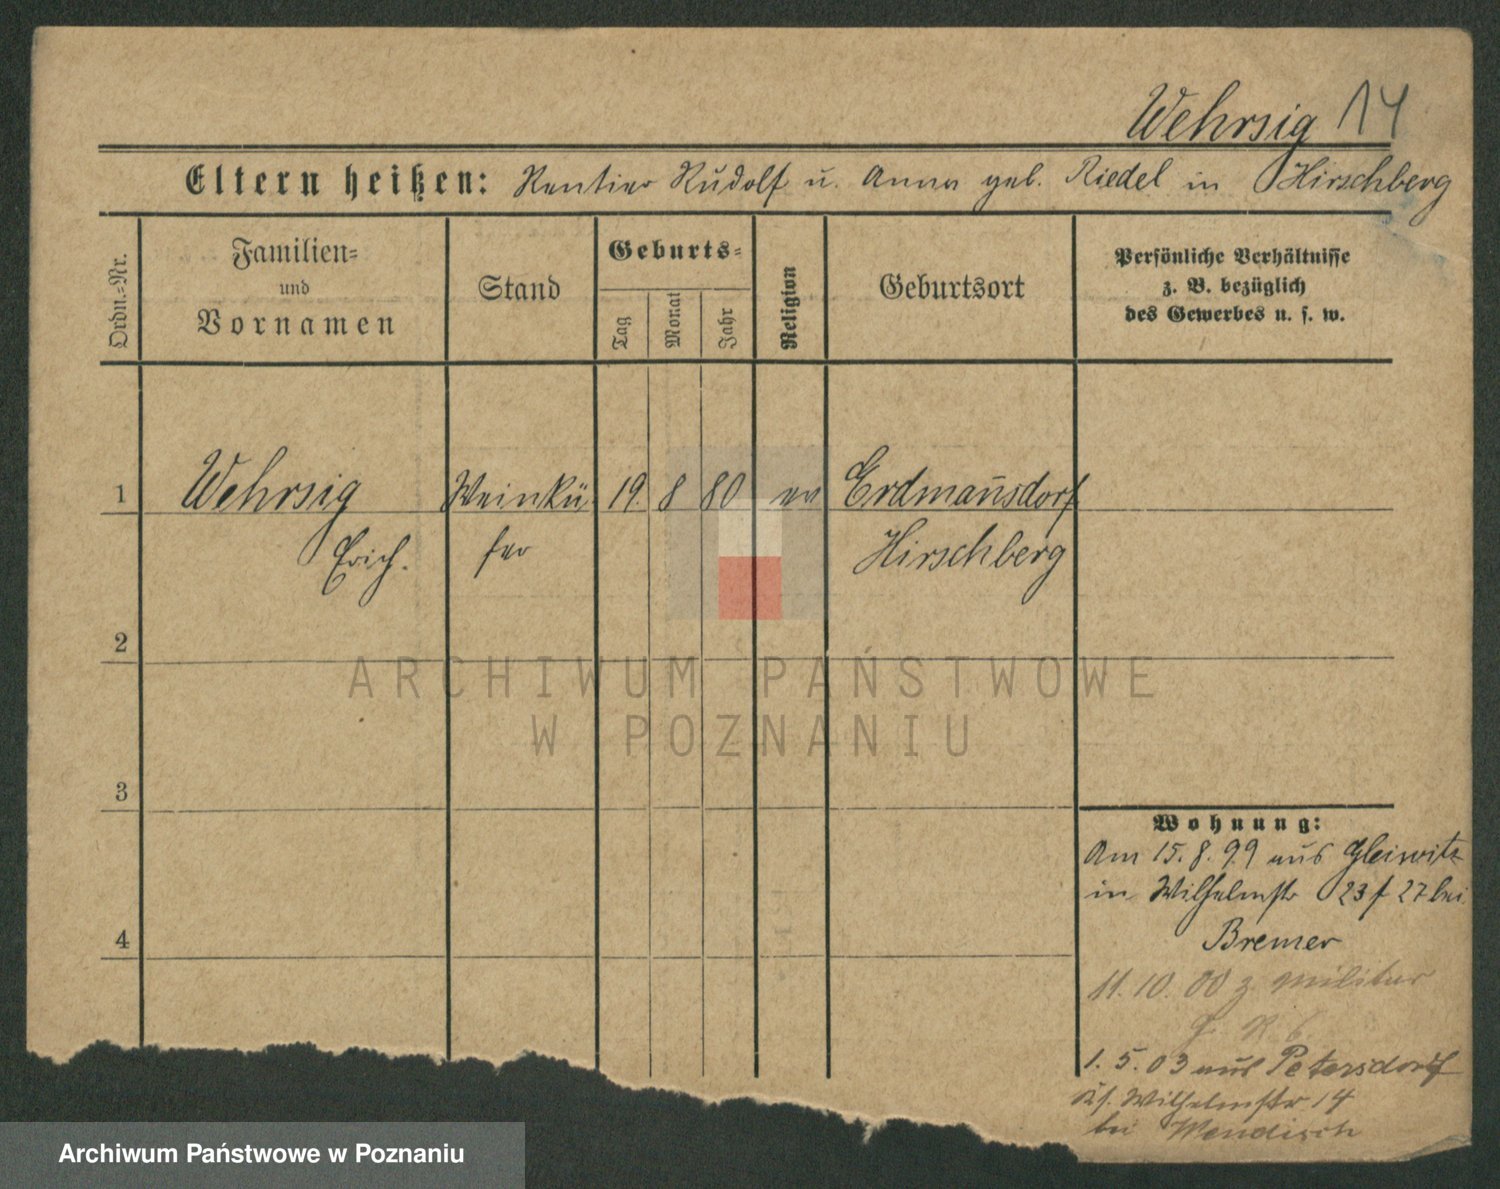 Wehrsig 14
Eltern heißen: Rentier Rudolf u. Anna geb. Riedel in Hirschberg
Ordn.=Nr.
Familien=
und
Vornamen
Stand
Geburts=
Tag
Monat
Jahr
Religion
Geburtsort
Persönliche Verhältnisse
z. B. bezüglich
des Gewerbes u. s. w.
1 Wehrsig Weinkü 19. 8 80 ev Erdmannsdorf
Erich. fer Hirschberg
2
3
4
Wohnung:
Am 15. 8. 99 aus Gleiwitz
in Wilhelmstr 23 f 27 bei
Bremer
11. 10. 00 z Militär
1. 5. 03 aus Petersdorf
Wilhelmstr 14
bei Wendisch
ARCHIWUM PAŃSTWOWE
W POZNANIU
Archiwum Państwowe w Poznaniu